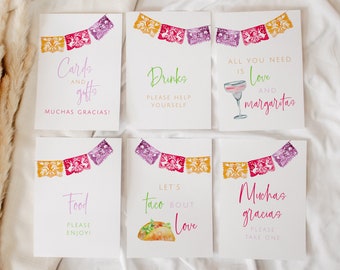 Cards
and
gifts
MUCHAS GRACIAS!
Drinks
PLEASE HELP
YOURSELF
ALL YOU NEED
IS Love
AND
margaritas
Food
PLEASE
ENJOY!
LET'S
taco 'BOUT
Love
Muchas
gracias
PLEASE
TAKE ONE